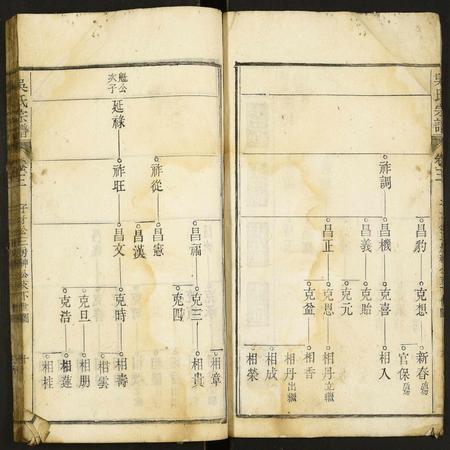 吳氏宗譜
卷三
祚調
昌豹
昌機
昌義
昌正
克想
克喜
克貽
克元
克恩
克盆
新春
官保
相入
相丹立繼
相香
相丹出繼
相成
相榮
魁公次子
延祿
祚從
祚旺
昌福
昌憲
昌漢
昌文
克三
克四
克時
克旦
克浩
相章
相貴
相壽
相雲
相朋
相蓮
相桂
吳氏宗譜
卷三